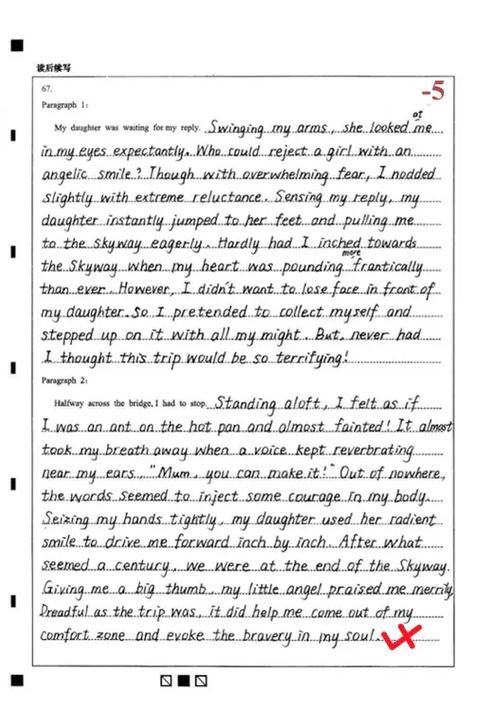 读后续写
67.
-5
Paragraph 1:
at
My daughter was waiting for my reply. Swinging my arms, she looked me
in my eyes expectantly. Who could reject a girl with an
angelic smile? Though with overwhelming fear, I nodded
slightly with extreme reluctance. Sensing my reply, my
daughter instantly jumped to her feet and pulling me
to the Skyway eagerly. Hardly had I inched towards
more
the Skyway when my heart was pounding frantically
than ever. However, I didn't want to lose face in front of
my daughter. So I pretended to collect myself and
stepped up on it with all my might. But, never had
I thought this trip would be so terrifying!
Paragraph 2:
Halfway across the bridge, I had to stop. Standing aloft, I felt as if
I was an ant on the hot pan and almost fainted! It almost
took my breath away when a voice kept reverbrating
near my ears, "Mum, you can make it!" Out of nowhere,
the words seemed to inject some courage in my body.
Seizing my hands tightly, my daughter used her radient
smile to drive me forward inch by inch. After what
seemed a century, we were at the end of the Skyway.
Giving me a big thumb, my little angel praised me merrily.
Dreadful as the trip was, it did help me come out of my
comfort zone and evoke the bravery in my soul.